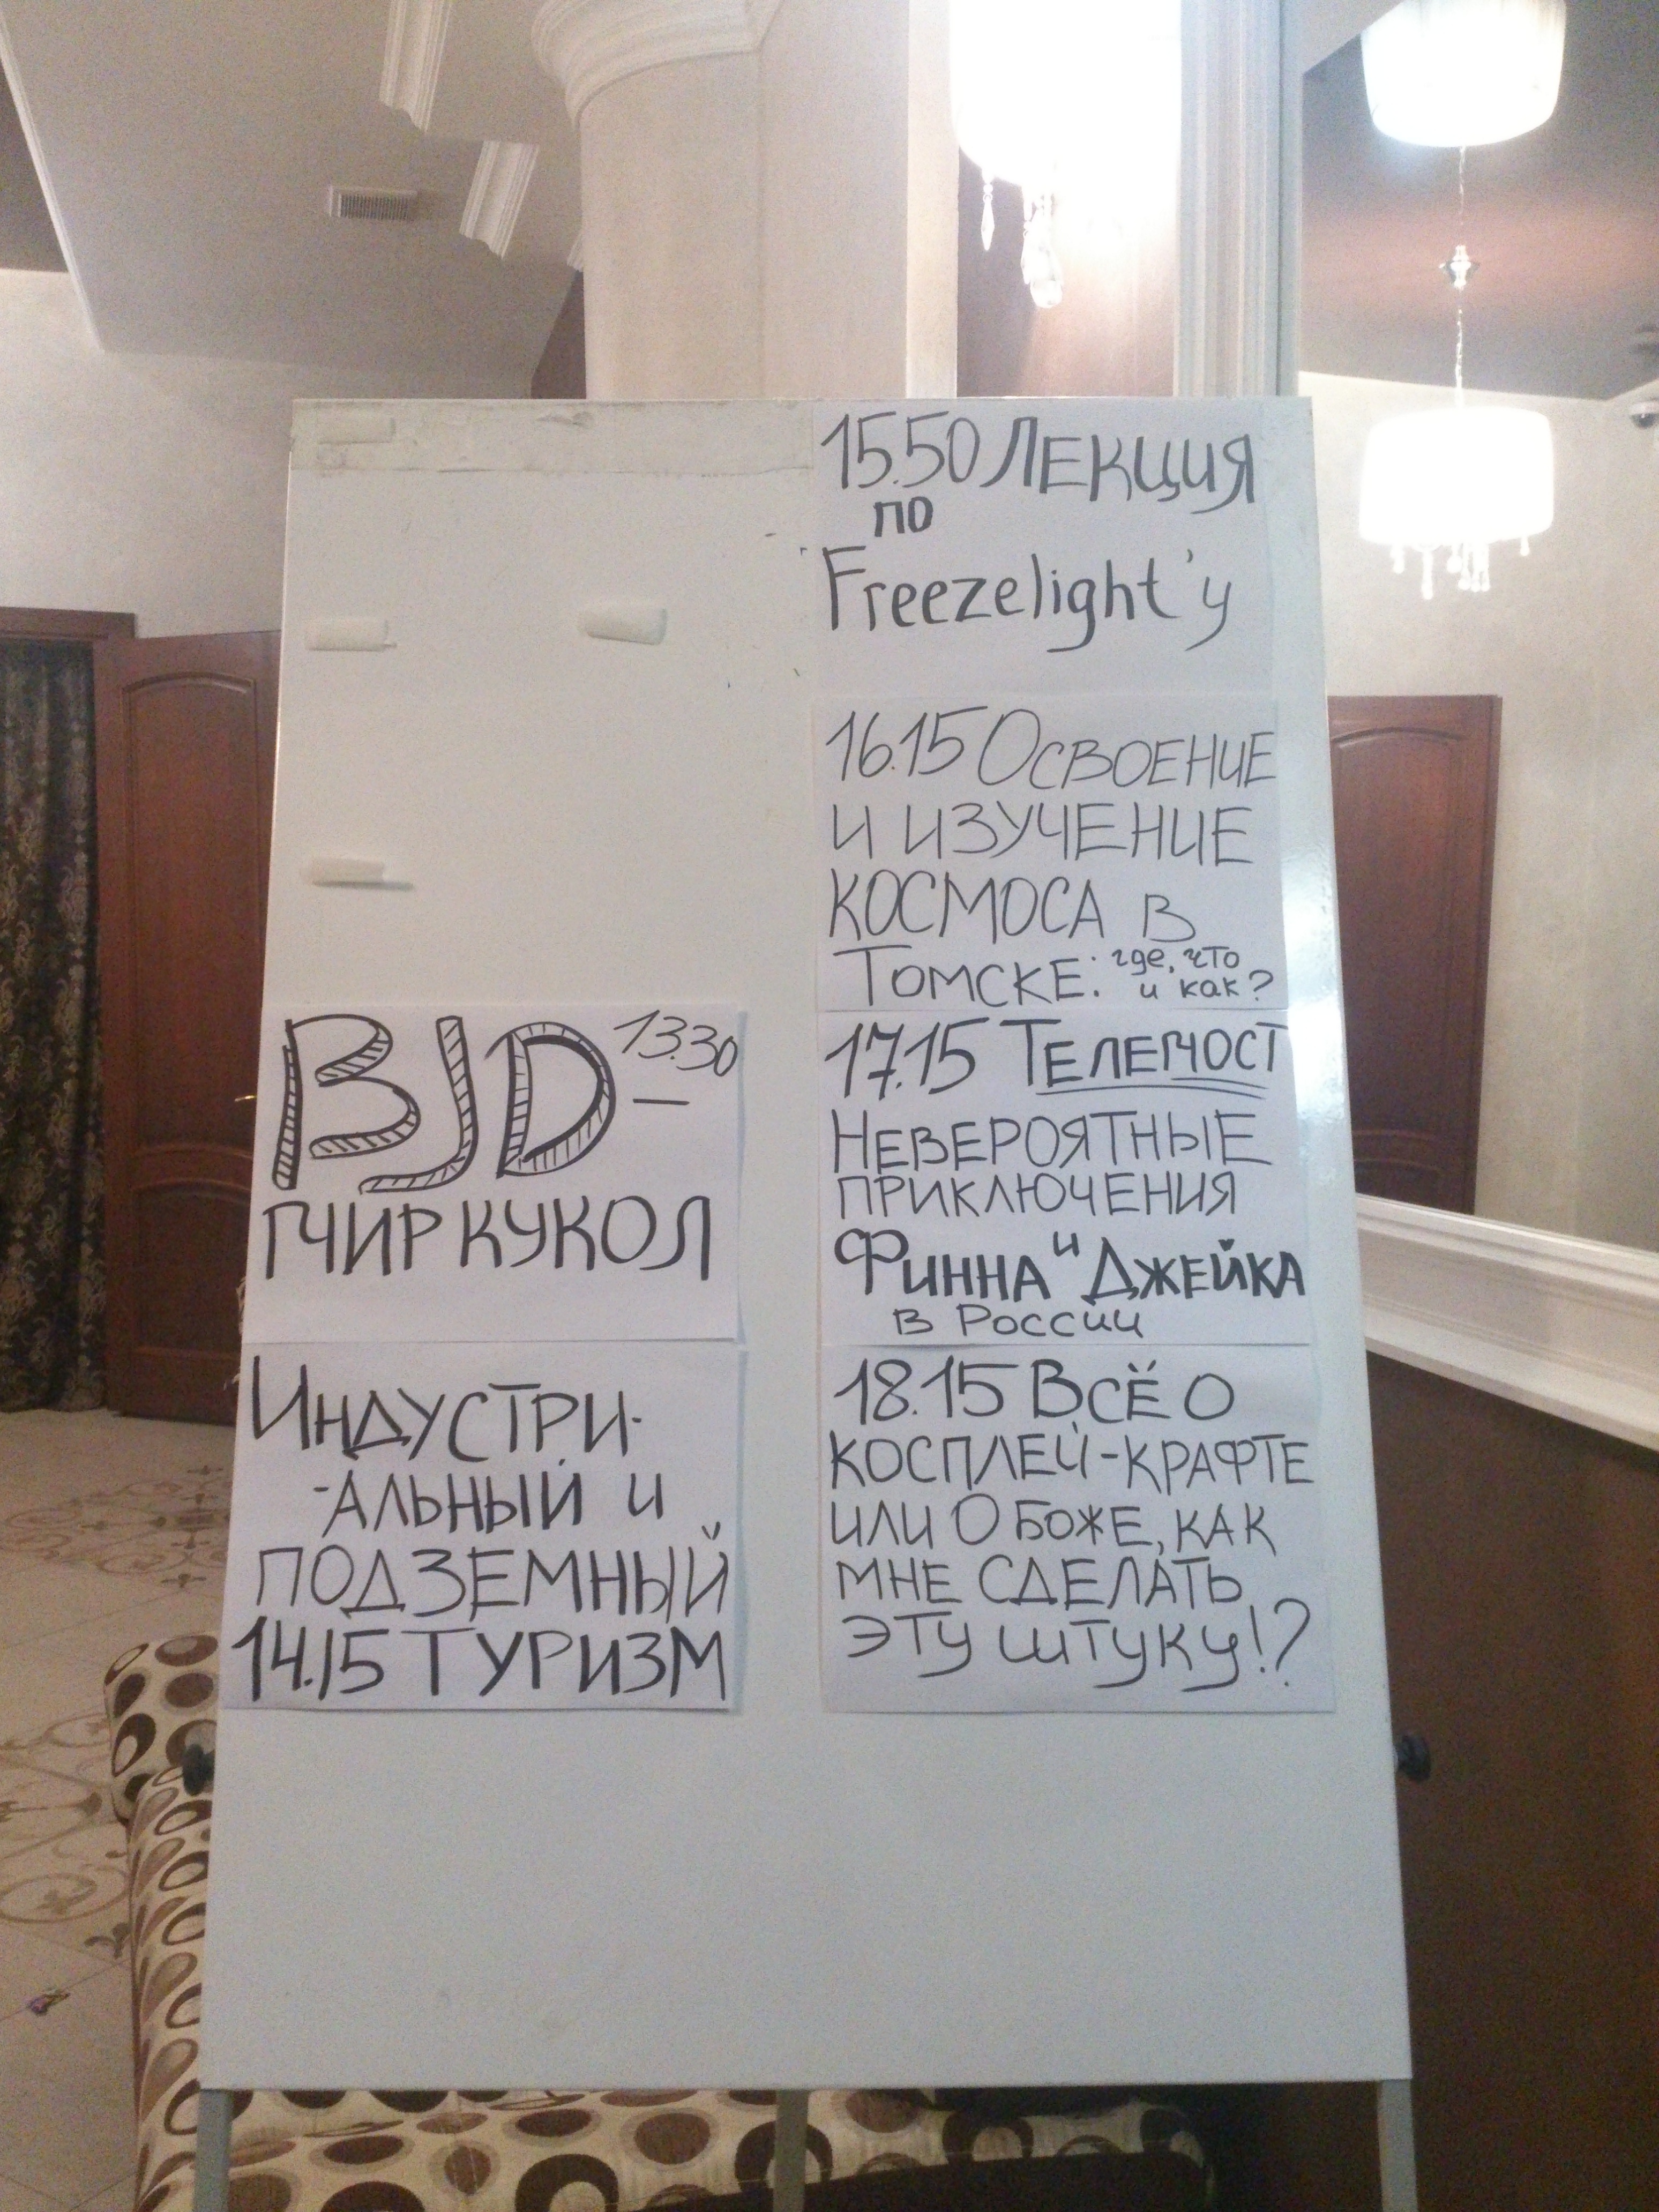 BJD 13.30
–
МИР КУКОЛ
ИНДУСТРИ-
-АЛЬНЫЙ И
ПОДЗЕМНЫЙ
14.15 ТУРИЗМ
15.50 ЛЕКЦИЯ
по
Freezelight'у
16.15 ОСВОЕНИЕ
И ИЗУЧЕНИЕ
КОСМОСА В
ТОМСКЕ: где, что
и как?
17.15 ТЕЛЕМОСТ
НЕВЕРОЯТНЫЕ
ПРИКЛЮЧЕНИЯ
ФИННА И ДЖЕЙКА
В РОССИИ
18.15 ВСЁ О
КОСПЛЕЙ-КРАФТЕ
ИЛИ О БОЖЕ, КАК
МНЕ СДЕЛАТЬ
ЭТУ ШТУКУ!?